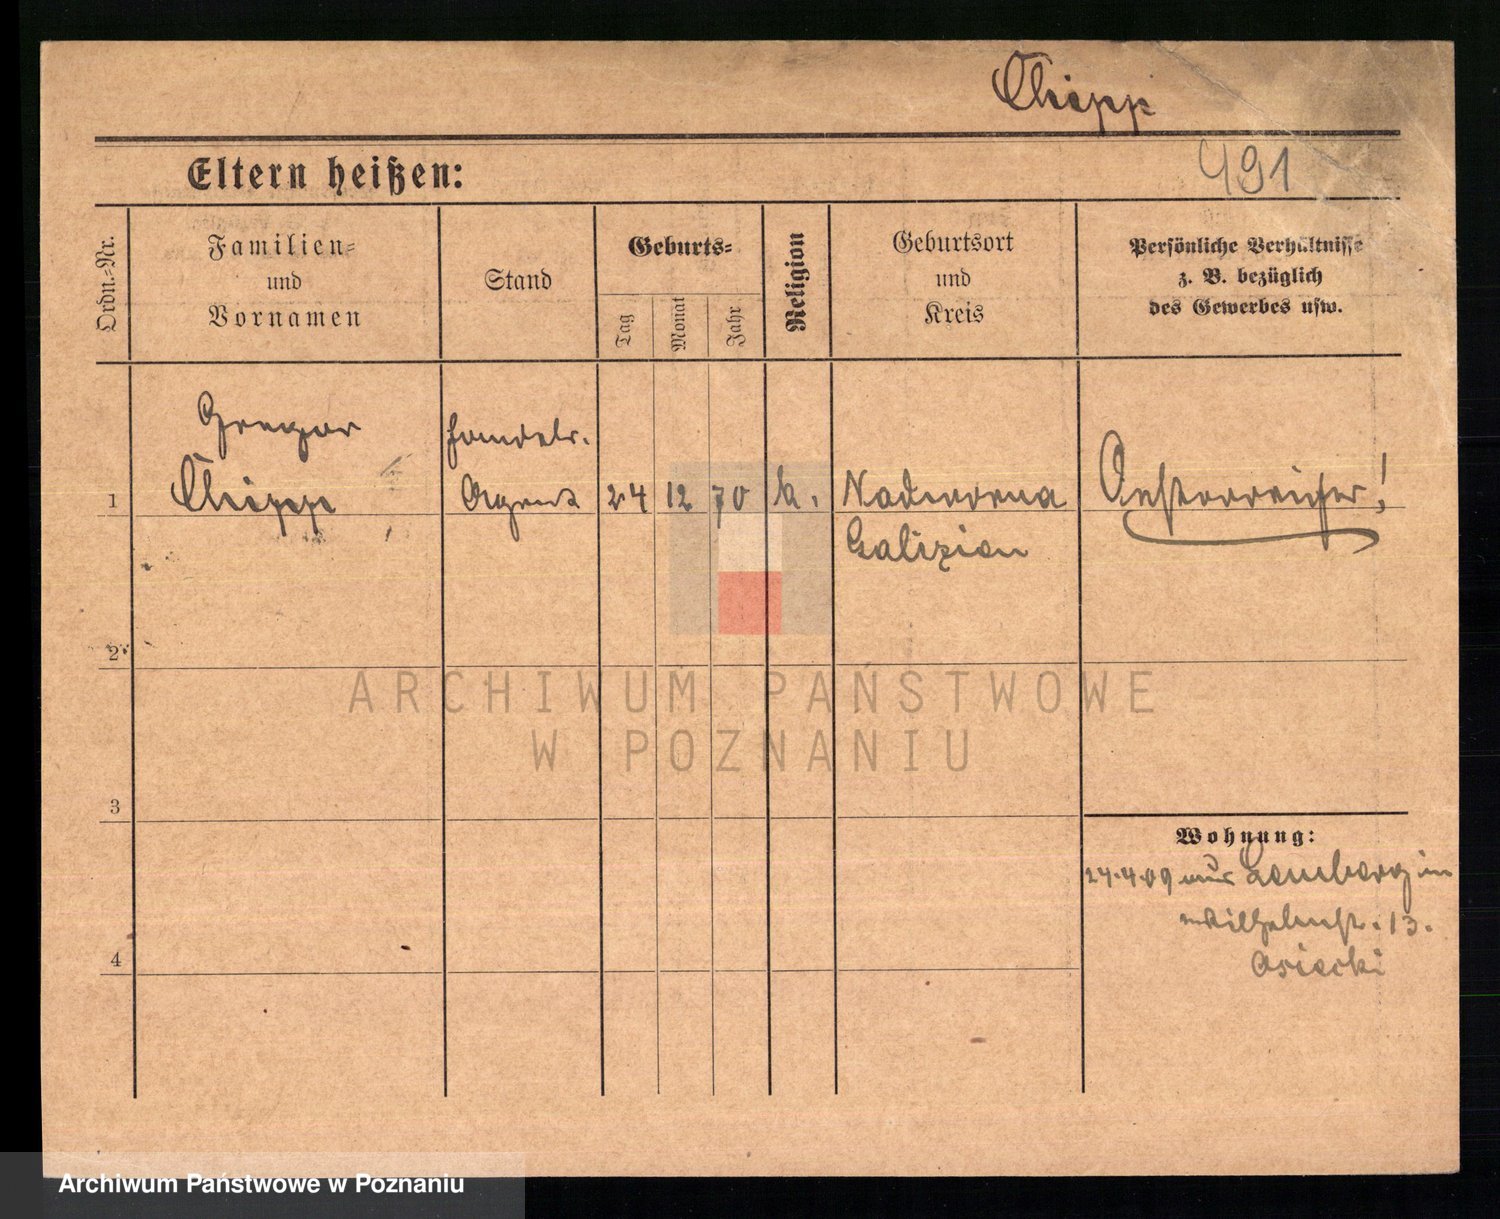 Chipp
491
Eltern heißen:
Ordn.-Nr.
Familien-
und
Vornamen
Stand
Geburts-
Tag
Monat
Jahr
Religion
Geburtsort
und
Kreis
Persönliche Verhältnisse
z. B. bezüglich
des Gewerbes usw.
Gregor
Chipp
Handels-
Agent
1
24 12 70 k.
Nadworna
Galizien
Oesterreicher!
2
3
4
Wohnung:
24.4.09 aus Lemberg in
Wilhelmst. 13.
Osiecki
ARCHIWUM PAŃSTWOWE
W POZNANIU
Archiwum Państwowe w Poznaniu